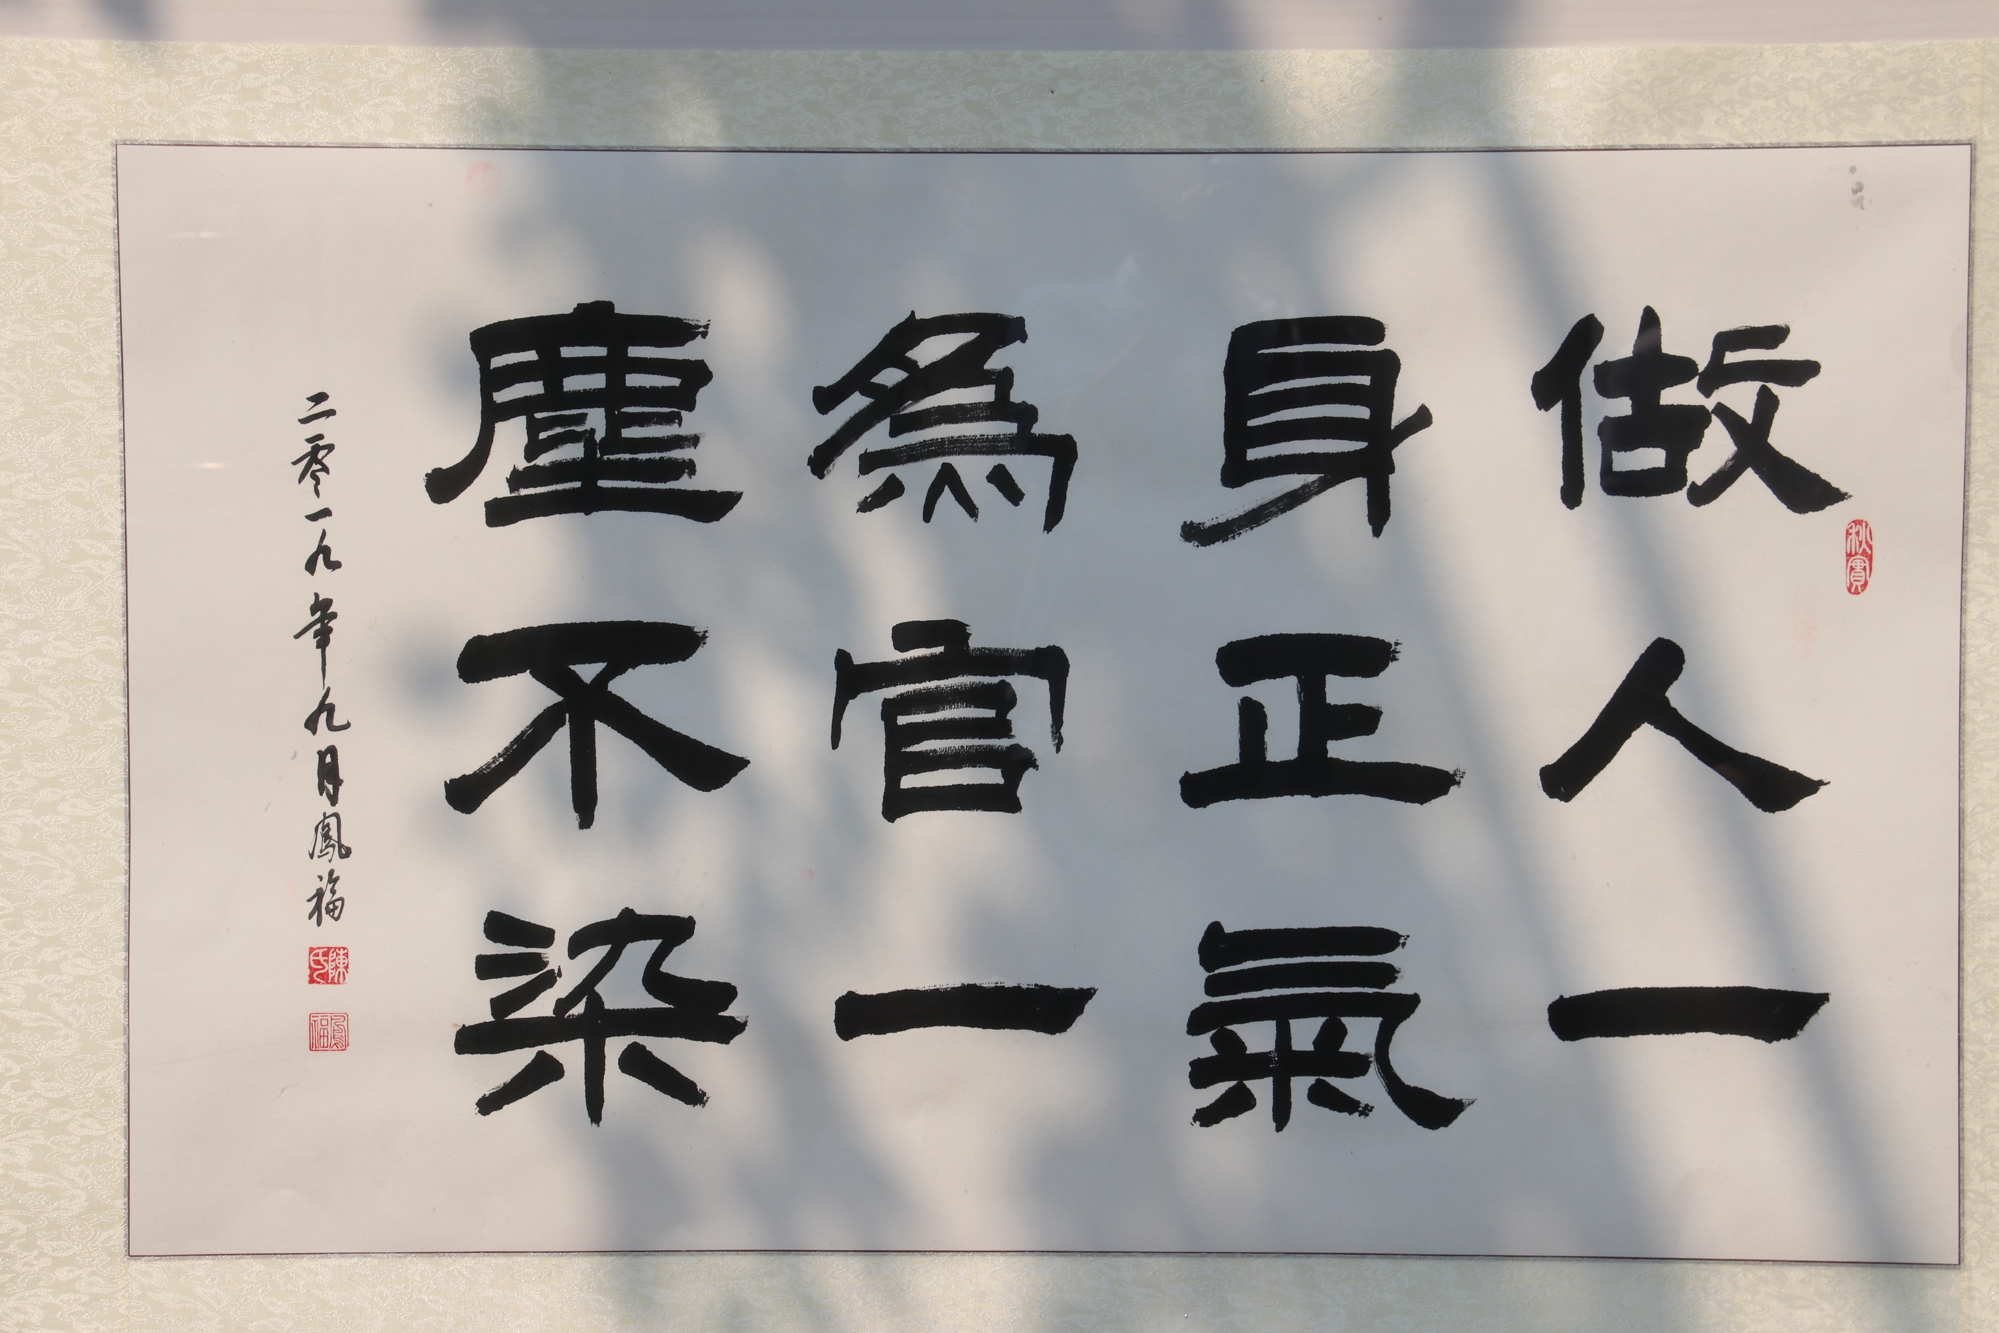 做人一
身正氣
為官一
塵不染
二零一九年九月鳳福
秋實
陳氏
鳳福